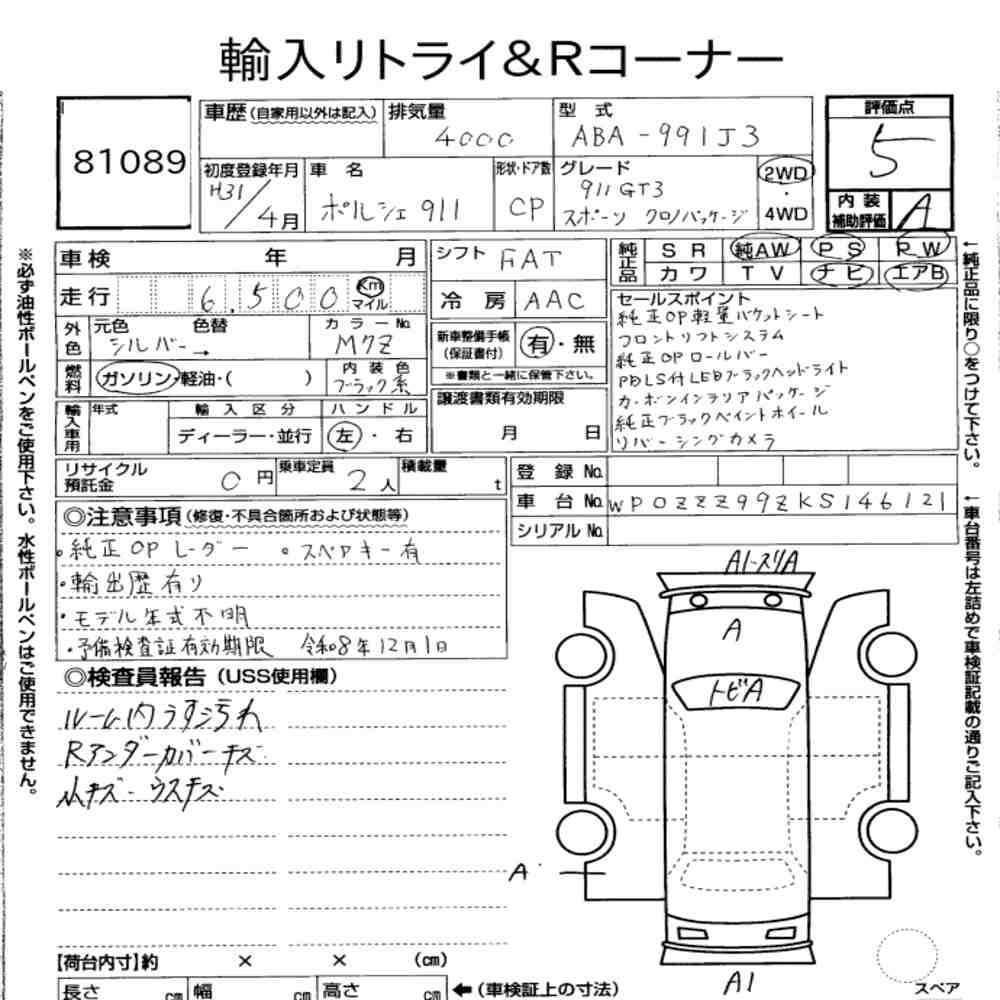 輸入リトライ&Rコーナー
81089
車歴(自家用以外は記入)
排気量
4000
型式
ABA-991J3
評価点
5
初度登録年月
H31/4月
車名
ポルシェ911
形状・ドア数
CP
グレード
911GT3
スポーツ クロノパッケージ
2WD
・
4WD
内装
補助評価
A
車検 年 月
シフト
FAT
純正品
SR 純AW PS PW
カワ TV ナビ エアB
走行
6,500
Km
マイル
冷房
AAC
セールスポイント
純正OP軽量バケットシート
フロントリフトシステム
純正OPロールバー
PDLS付LEDブラックヘッドライト
カーボンインテリアパッケージ
純正ブラックペイントホイール
リバーシングカメラ
外色
元色 色替
シルバー→
カラーNo.
M7Z
新車整備手帳
(保証書付)
有・無
※書類と一緒に保管下さい。
燃料
ガソリン・軽油・( )
内装色
ブラック系
譲渡書類有効期限
月 日
輸入車用
年式
輸入区分
ディーラー・並行
ハンドル
左・右
リサイクル
預託金
0円
乗車定員
2人
積載量
t
登録No.
車台No.
WP0ZZZ99ZKS146121
シリアルNo.
◎注意事項(修復・不具合箇所および状態等)
・純正OPレーダー ・スペアキー有
・輸出歴有り
・モデル年式不明
・予備検査証有効期限 令和8年12月1日
◎検査員報告(USS使用欄)
ルーム内うすい汚れ
Rアンダーカバーキズ
小キズ ウスキズ
A1・スリA
A
トビA
A
A1
スペア
【荷台内寸】約 × × (cm)
長さ cm 幅 cm 高さ cm ←(車検証上の寸法)
※必ず油性ボールペンをご使用下さい。水性ボールペンはご使用できません。
←純正品に限り○をつけて下さい。
←車台番号は左詰めで車検証記載の通りご記入下さい。